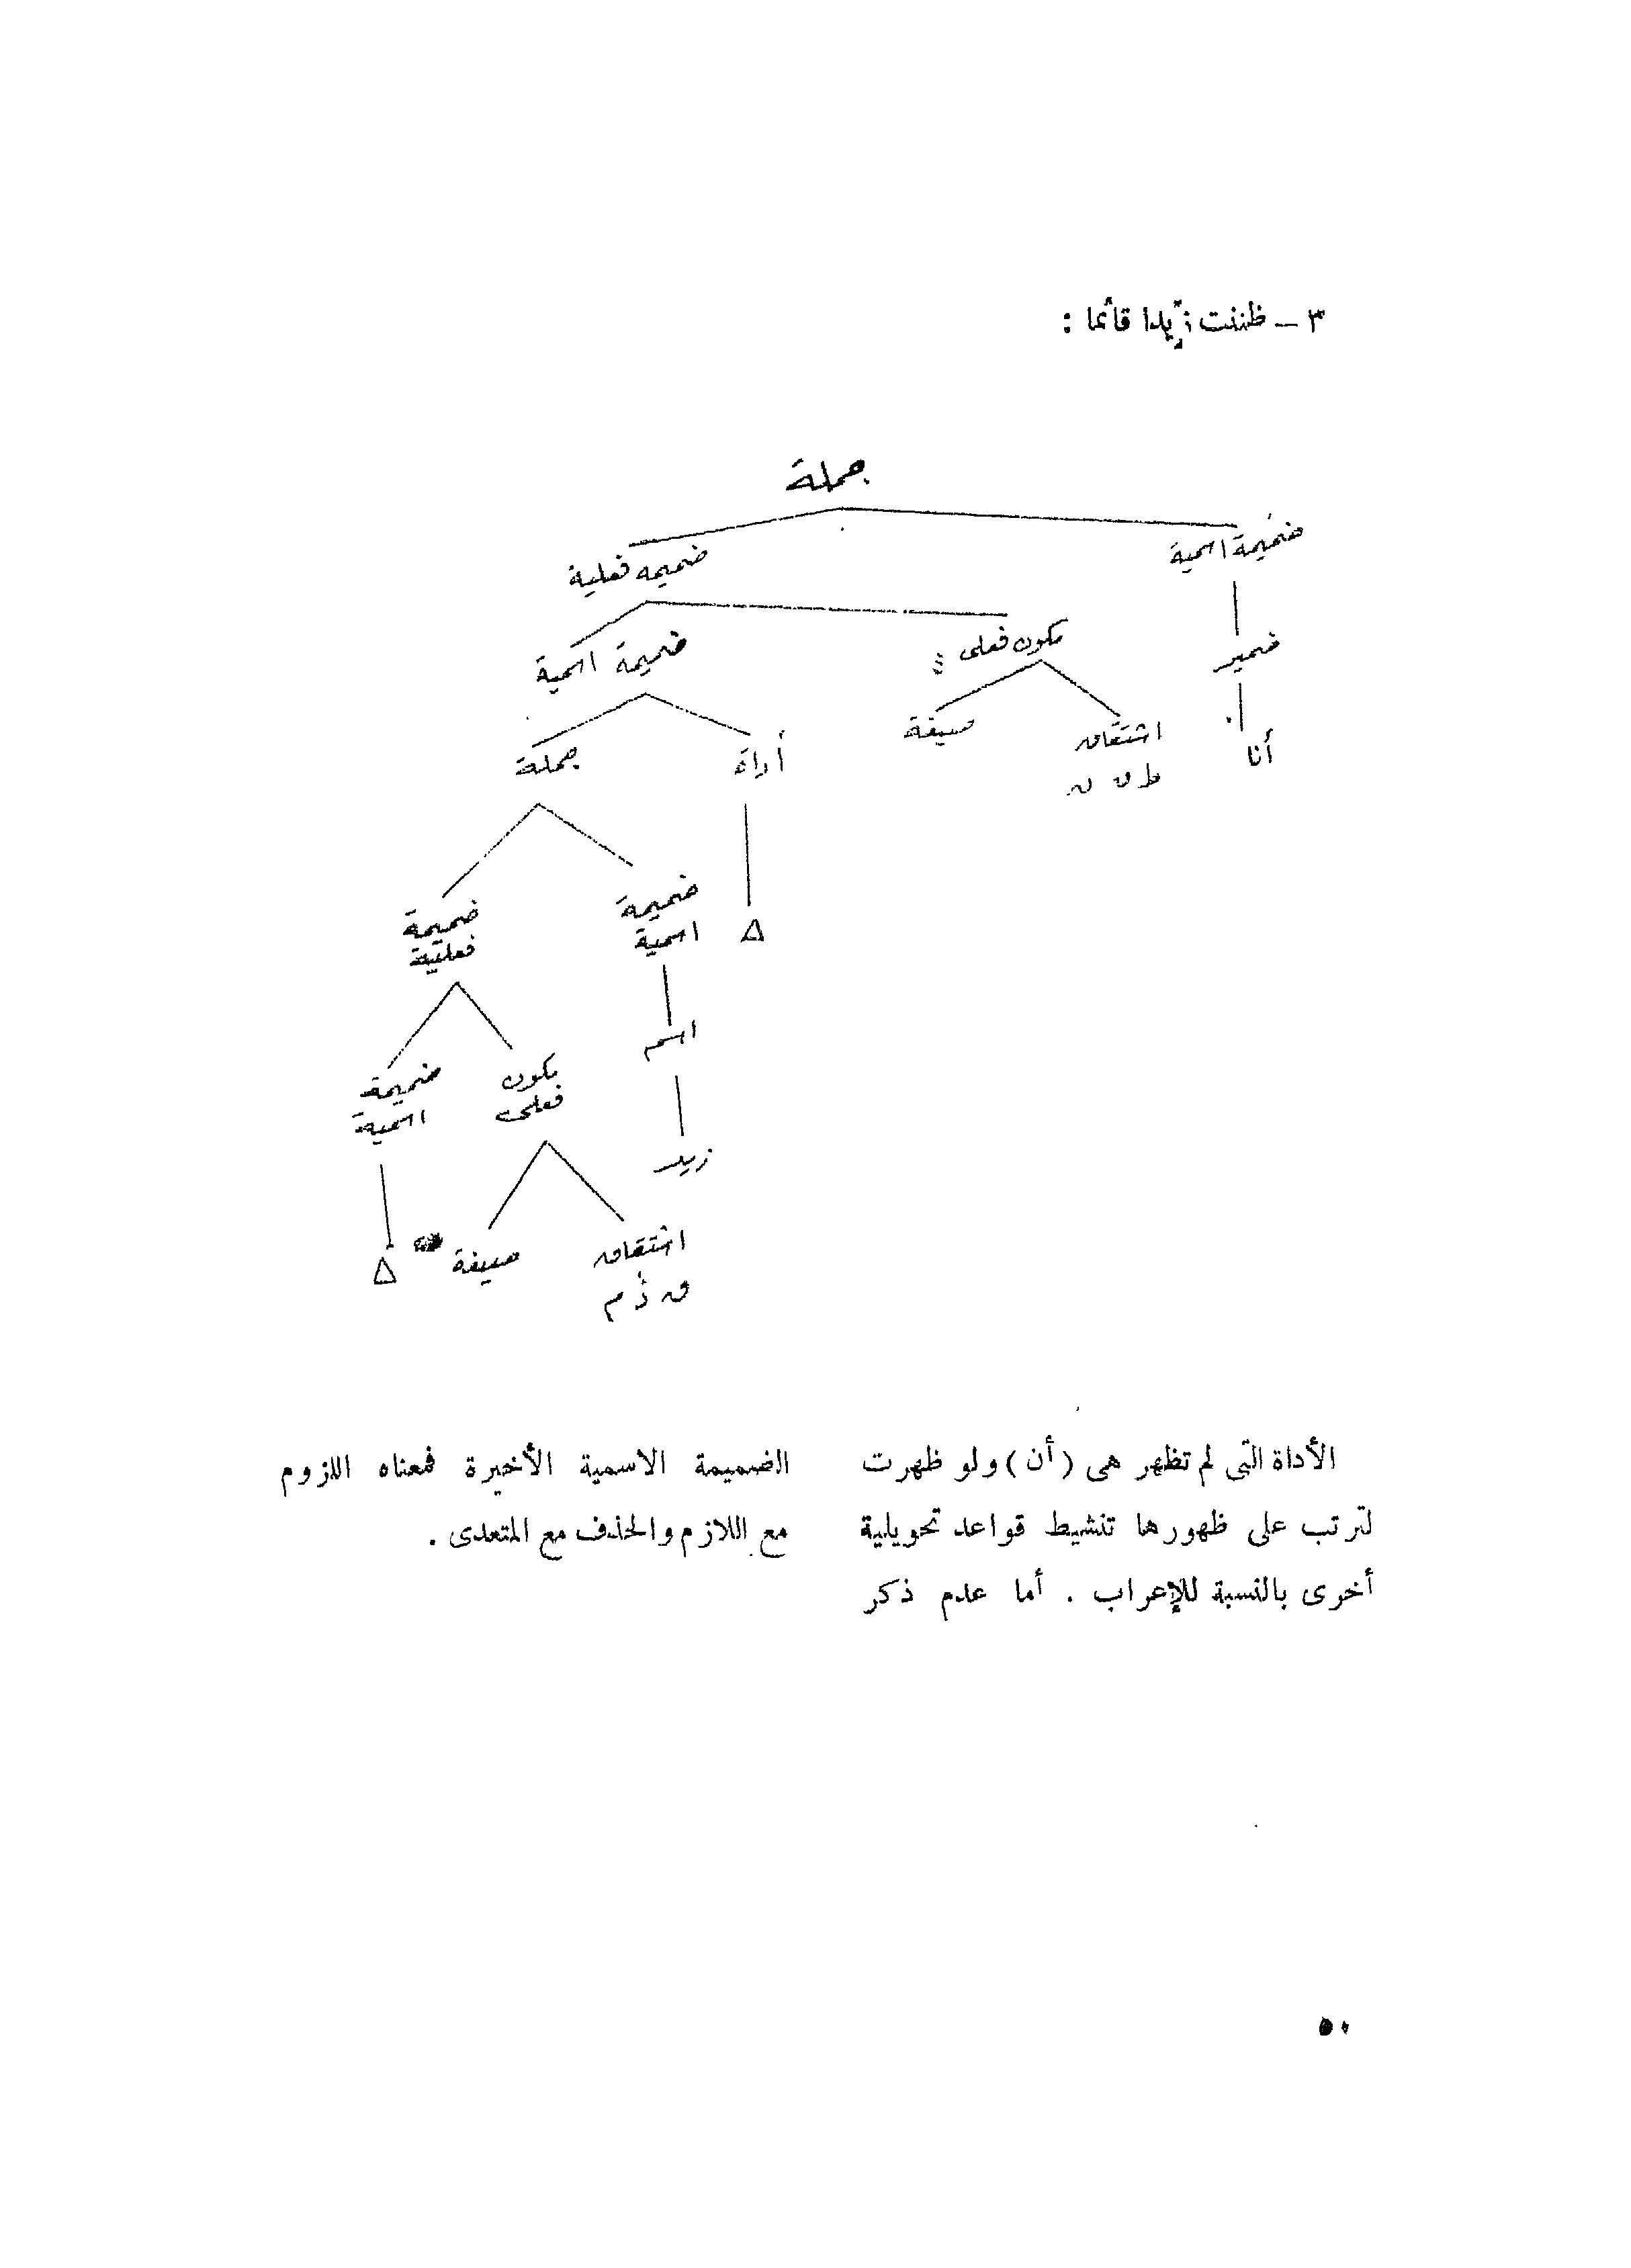 ٣ – ظننت زيدا قائما :
جملة
ضميمة اسمية
ضميمه فعلية
مكون فعلى
ضميمة اسمية
ضمير
اشتقاق
صيغة
أنا
أداة
جملة
ضميمة
اسمية
ضميمة
فعلية
Δ
اسم
مكون
فعلى
ضميمة
اسمية
زيد
اشتقاق
صيغة
Δ
الأداة التى لم تظهر هى (أن) ولو ظهرت
لترتب على ظهورها تنشيط قواعد تحويلية
أخرى بالنسبة للإعراب . أما عدم ذكر
الضميمة الاسمية الأخيرة فمعناه اللزوم
مع اللازم والحذف مع المتعدى .
٥٠